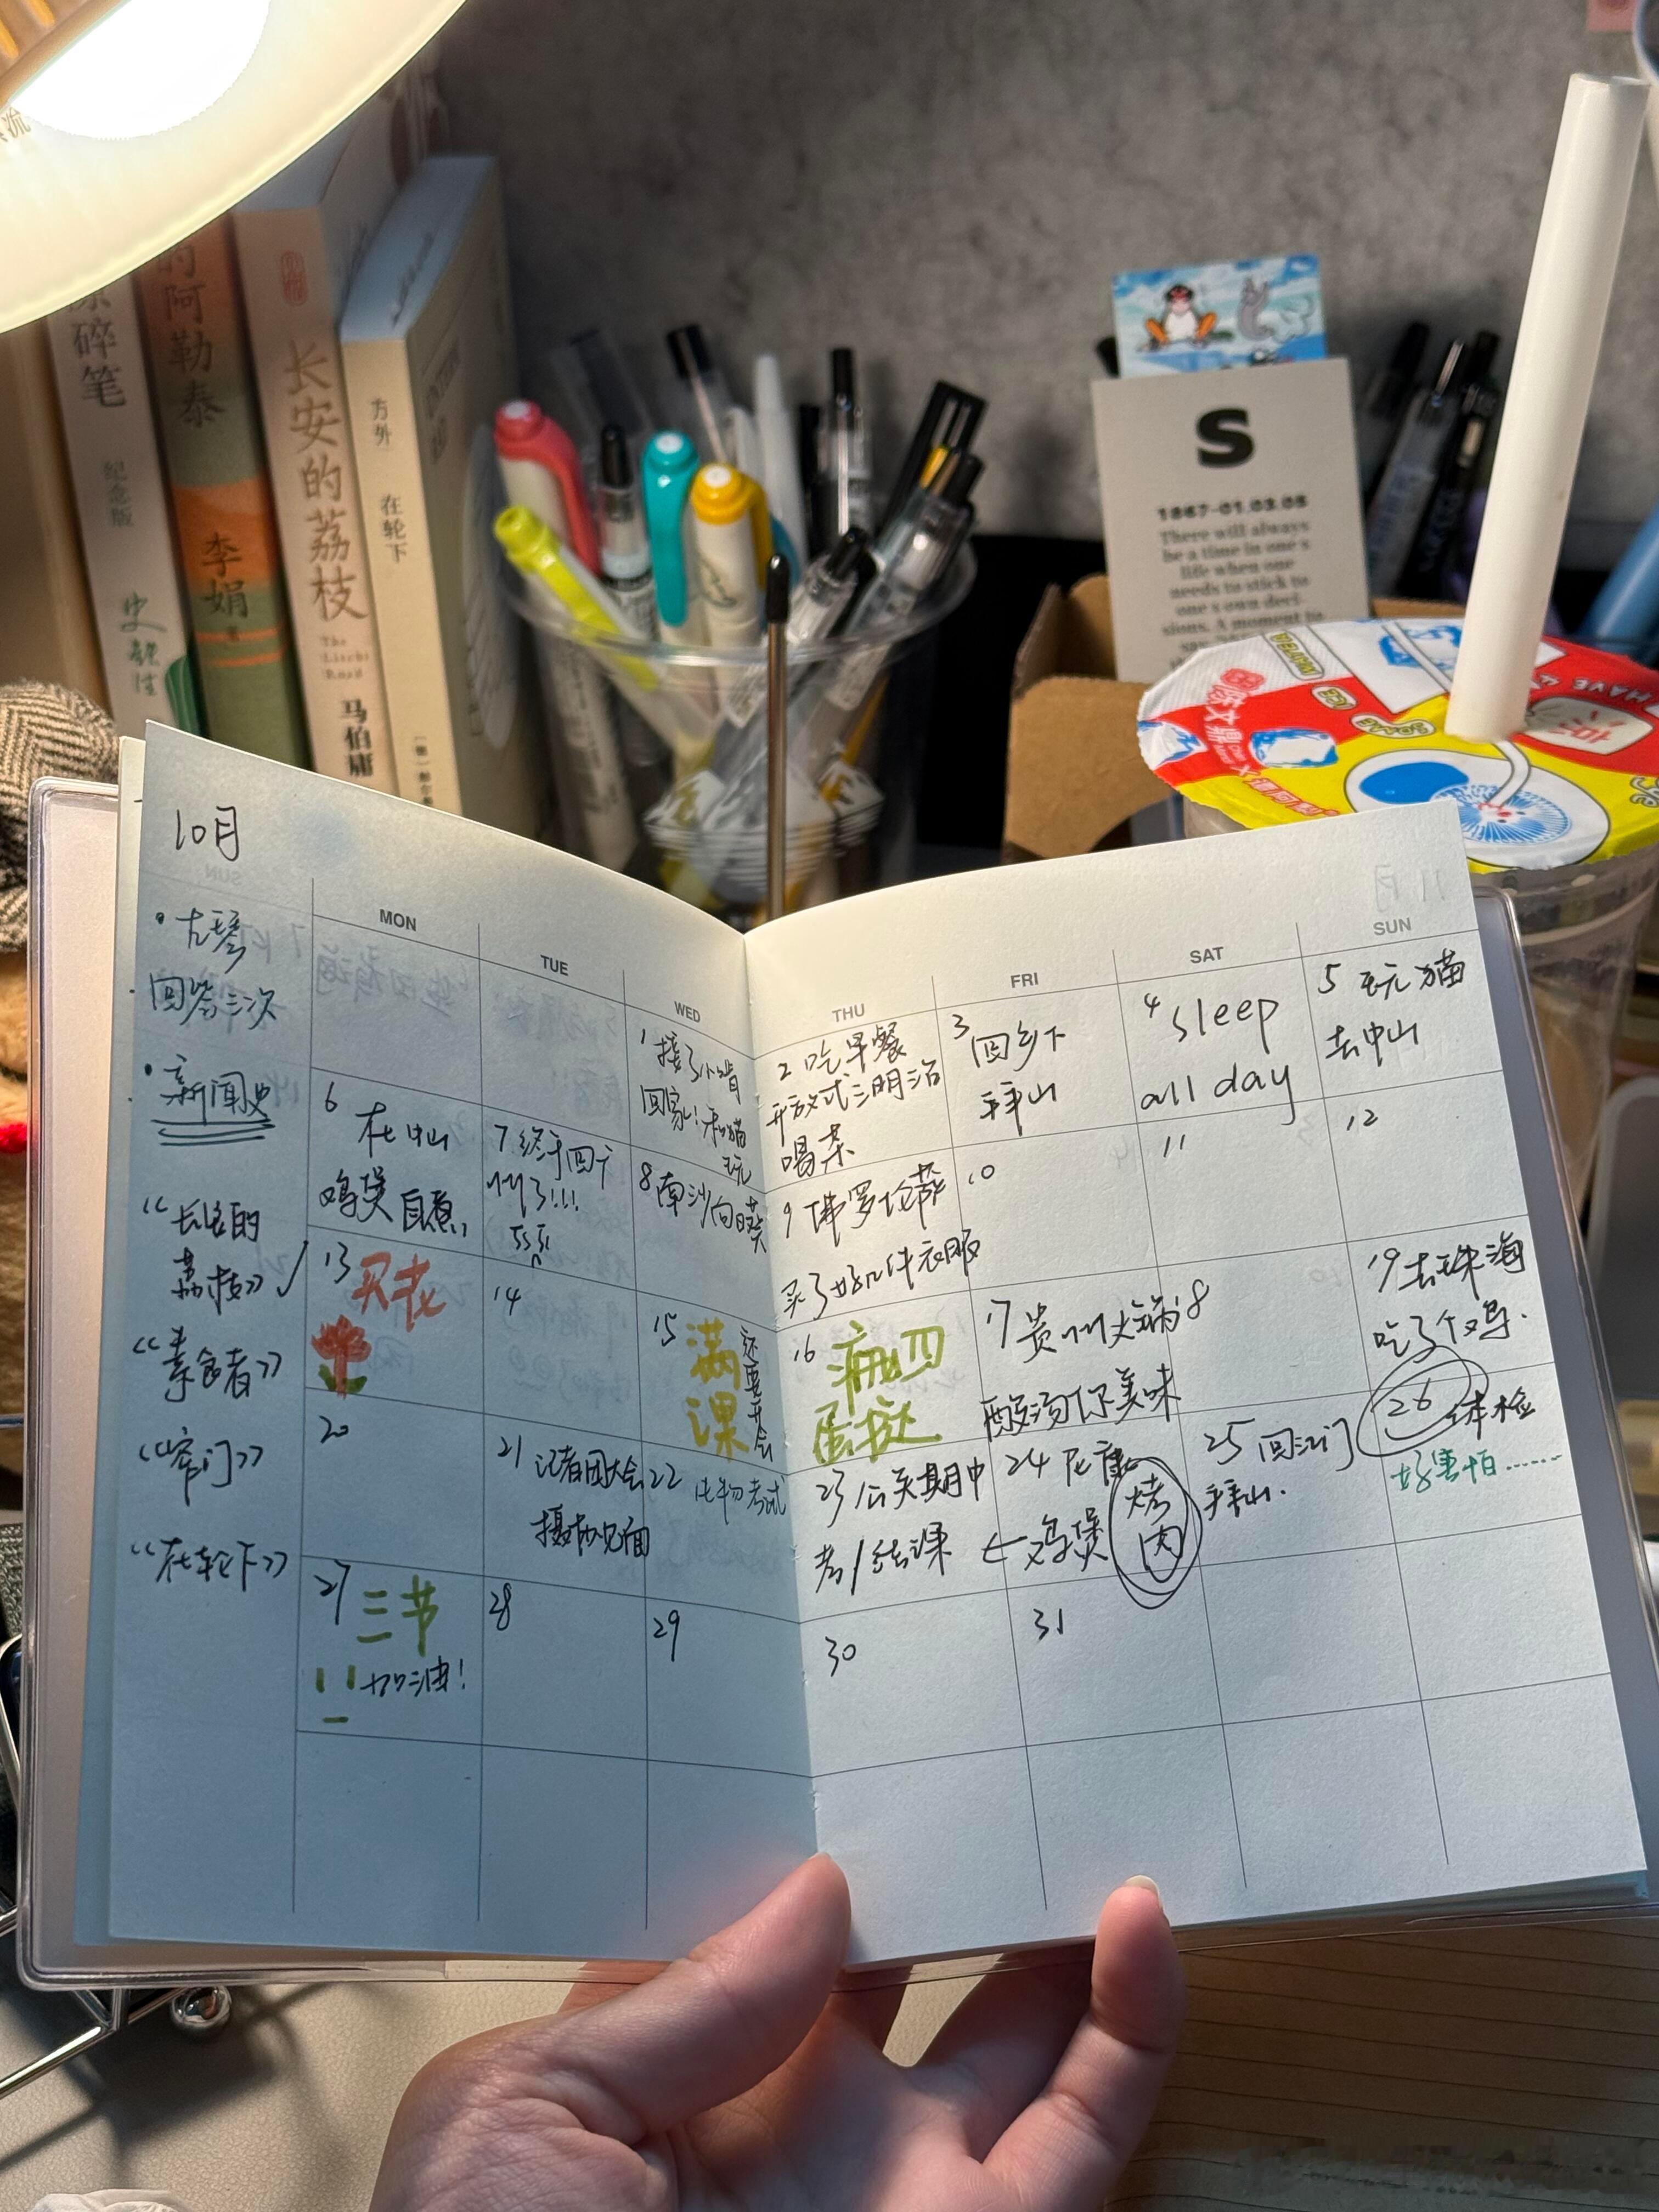 流
碎笔
纪念版
史铁生
的阿勒泰
李娟
长安的荔枝
The
Litchi
Road
马伯庸
方外
在轮下
S
1867-01.03.05
There will always
be a time in one's
life when one
needs to stick to
one's own deci-
sions. A moment to
HAVE
10月
MON
TUE
WED
THU
FRI
SAT
SUN
• 古琴
回答三次
• 新闻史
《长安的
荔枝》✓
《素食者》
《窄门》
《在轮下》
1 接了小猪
回家!和猫
玩
2 吃早餐
开放式三明治
喝茶
3 回乡下
拜山
4 sleep
all day
5 玩猫
去中山
6 在中山
鸡煲自煮
7 终于回广
州了!!!
8 南沙向日葵
9 佛罗伦萨
买了好几件衣服
10
11
12
13 买花
14
15 满课
还要开会
16 疯四
蛋挞
17 贵州火锅
酸汤你美味
18
19 去珠海
吃了个鸡.
20
21 记者团大会
摄协见面
22 化物考试
23 公关期中
考/结课
24
←鸡煲
烤肉
25 回江门
拜山.
26 体检
好害怕......
27 三节
!! 加油!
28
29
30
31